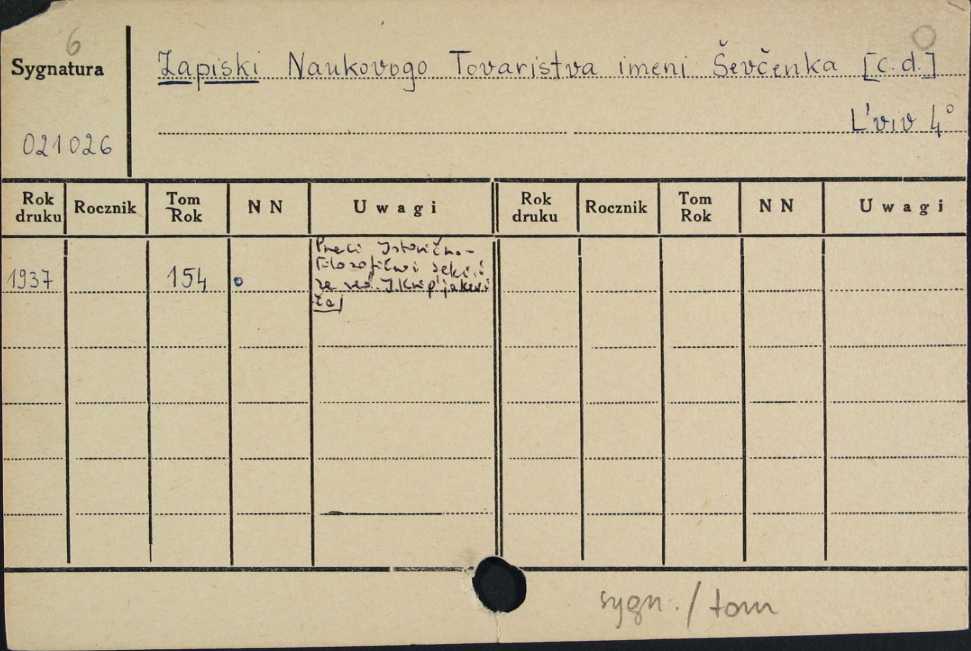 6
Sygnatura
021026
Zapiski Naukovogo Tovaristva imeni Ševčenka [c.d.]
L'viv 4°
Rok druku Rocznik Tom Rok NN Uwagi Rok druku Rocznik Tom Rok NN Uwagi
1937 154 o
Praci Istorično-
Filozofičnoi sekcii
za red. I. Krip'jakevi
ča]
sygn. / tom